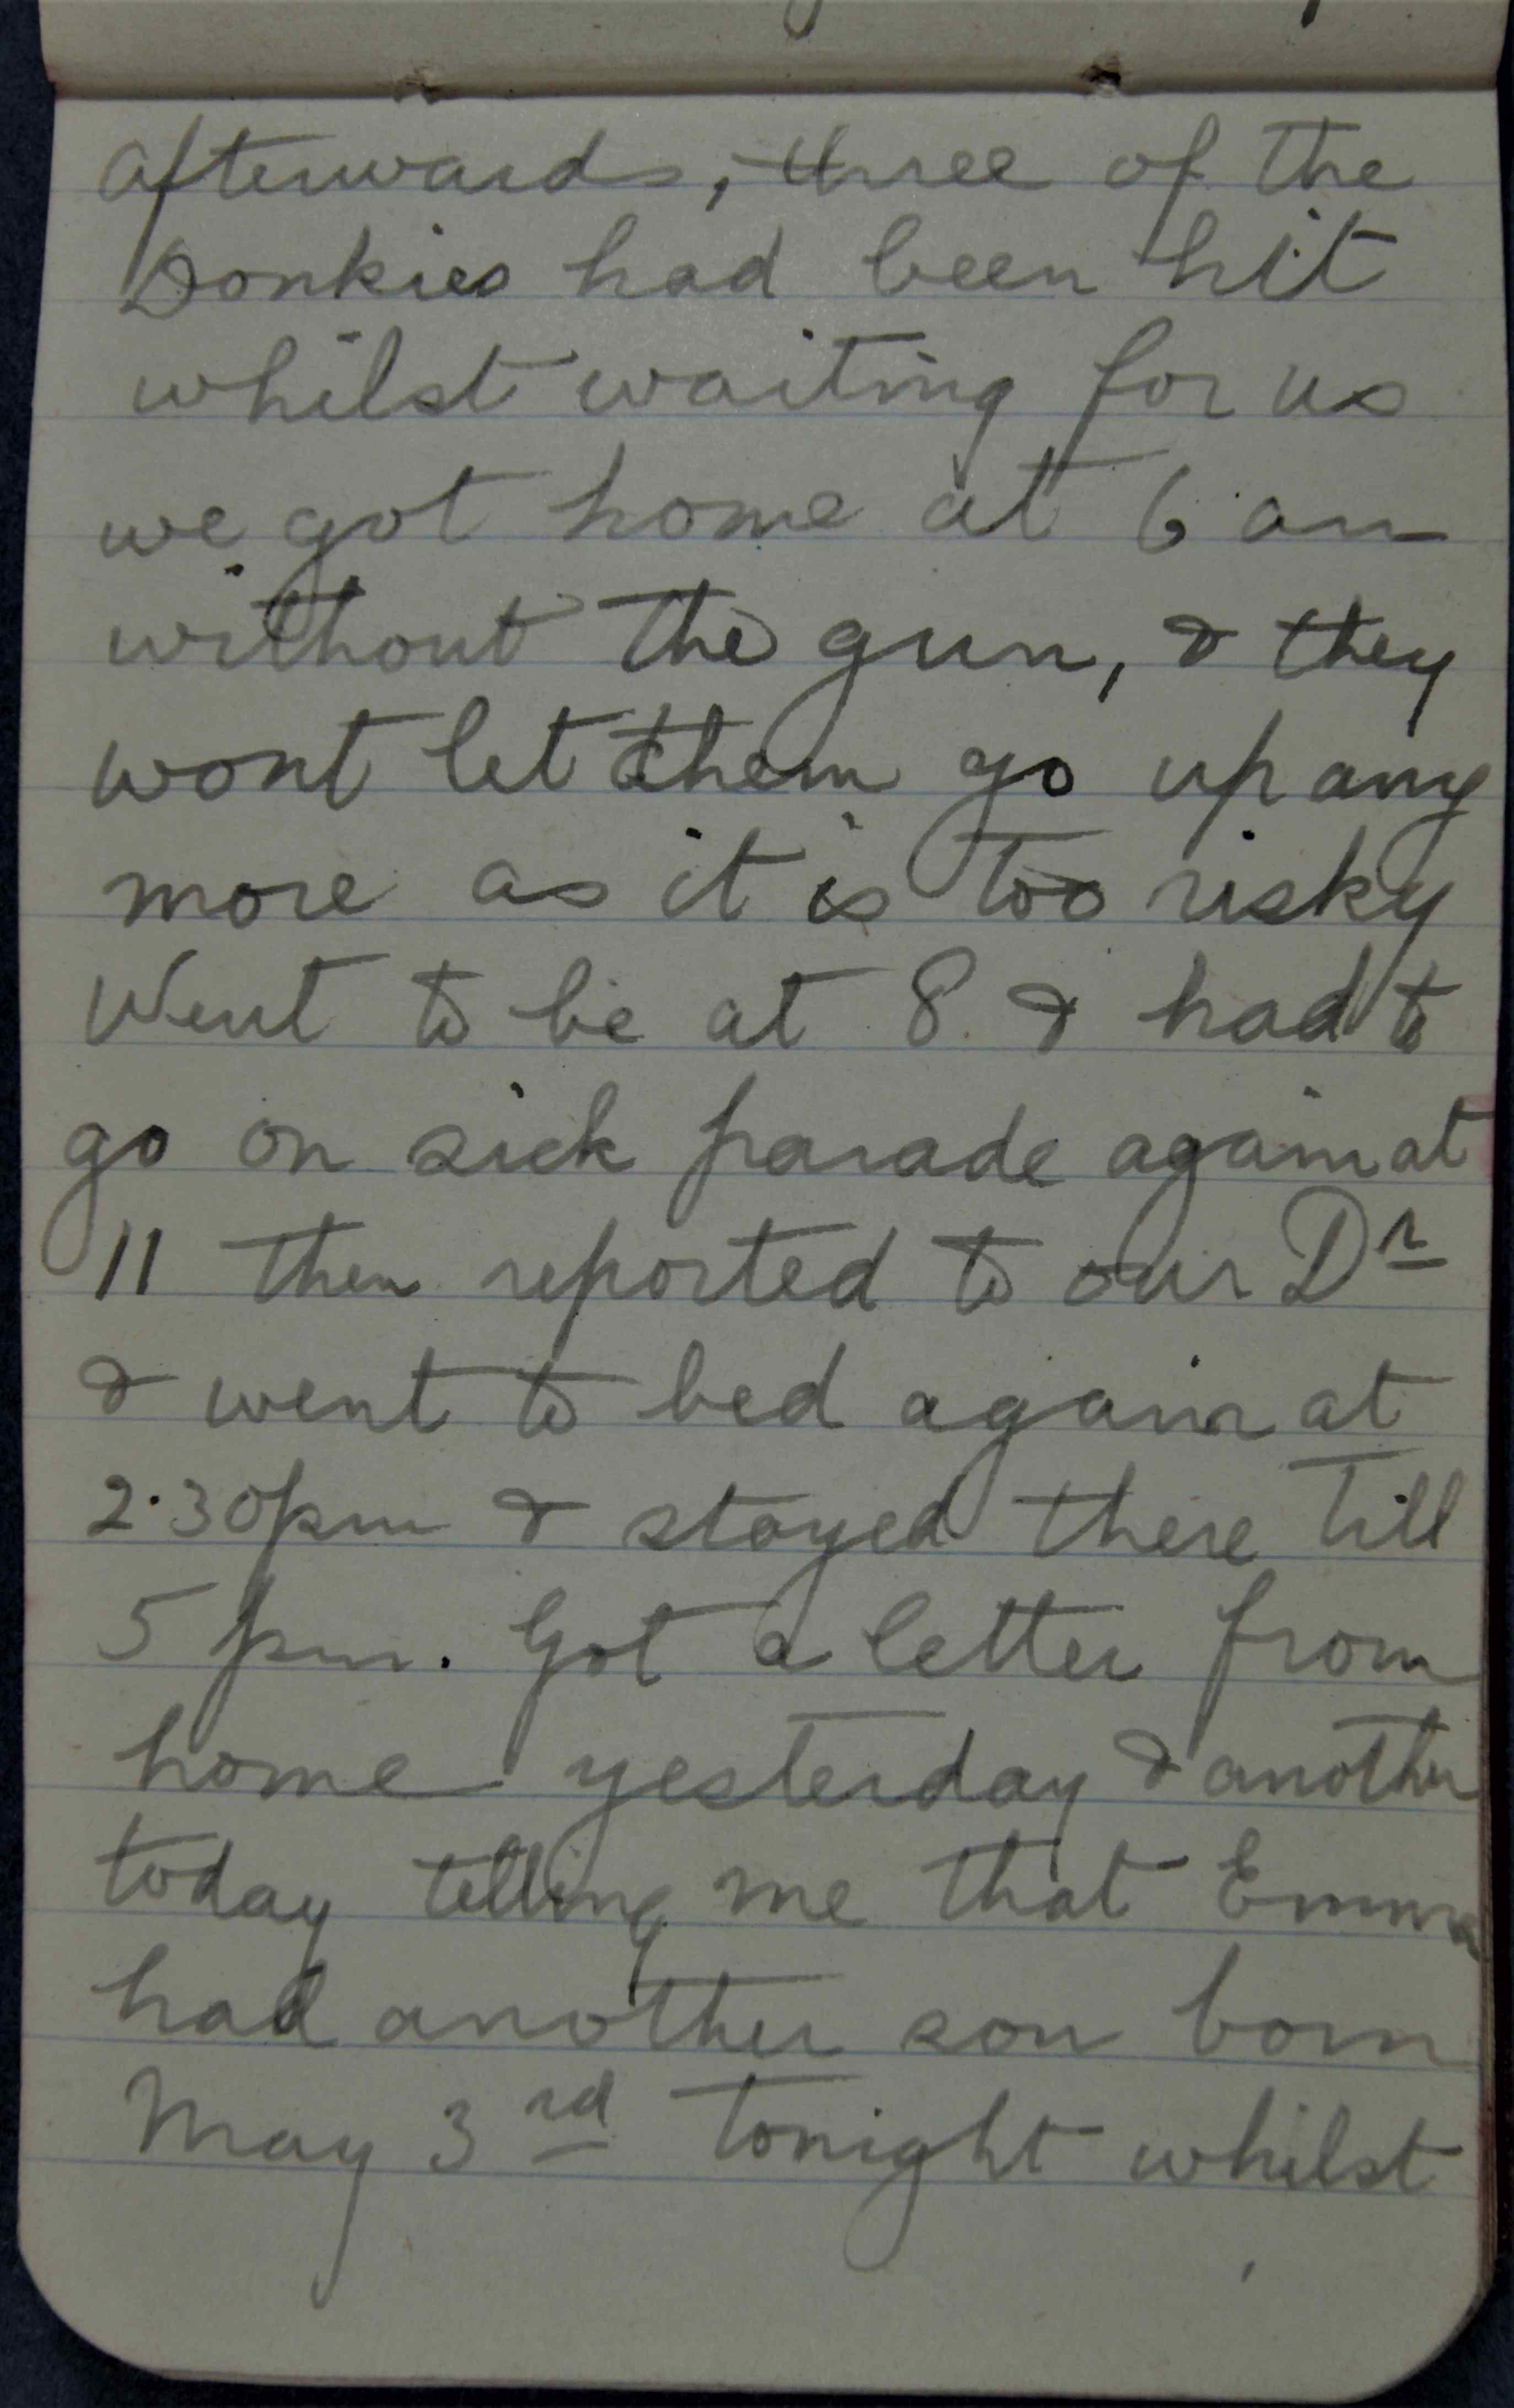 afterwards, three of the
Donkies had been hit
whilst waiting for us
we got home at 6 am
without the gun, & they
wont let them go up any
more as it is too risky
Went to be at 8 & had to
go on sick parade again at
11 then reported to our Dr
& went to bed again at
2.30pm & stayed there till
5 pm. Got a letter from
home yesterday & another
today telling me that Emma
had another son born
May 3rd tonight whilst